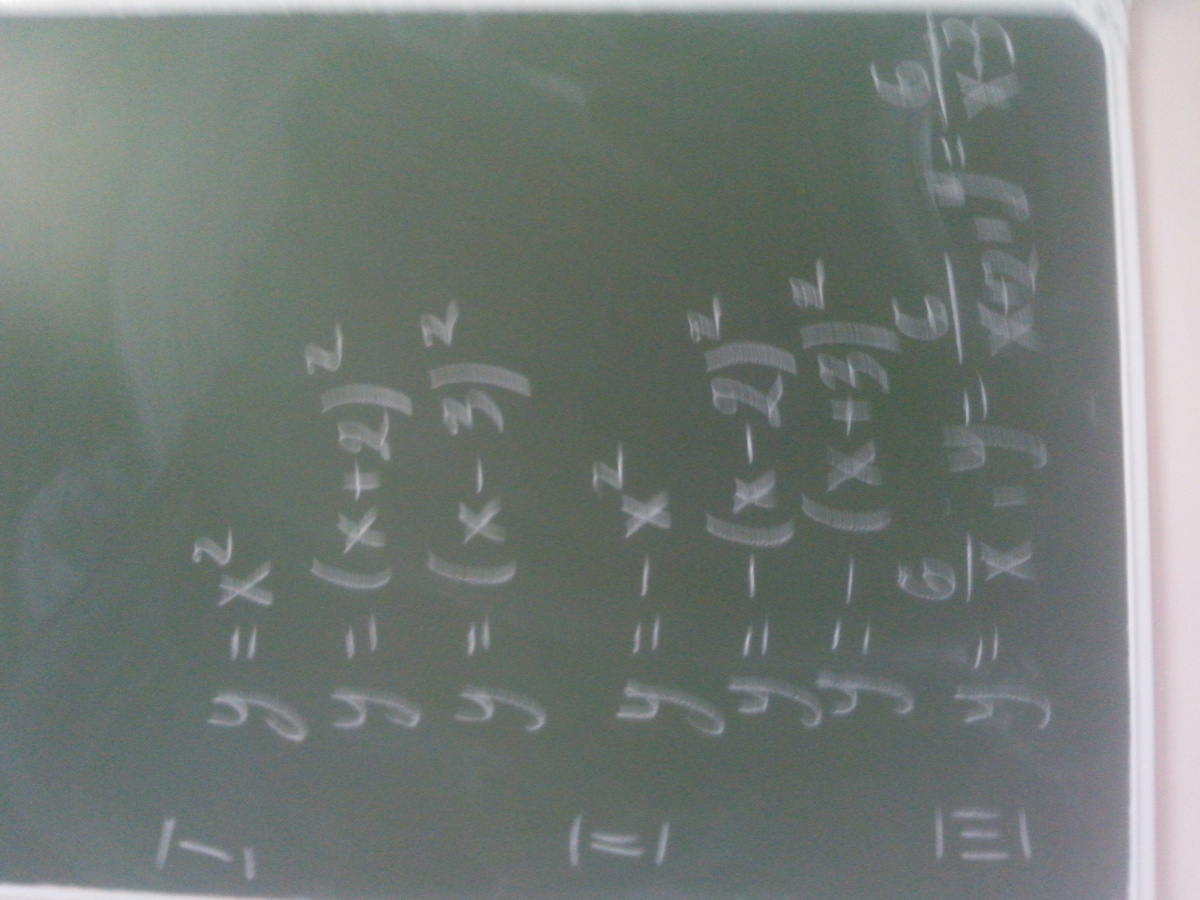 I y = x²
y = (x+2)²
y = (x-3)²
II y = -x²
y = -(x-2)²
y = -(x+3)²
III y = 6/x y = 6/ y = 6/